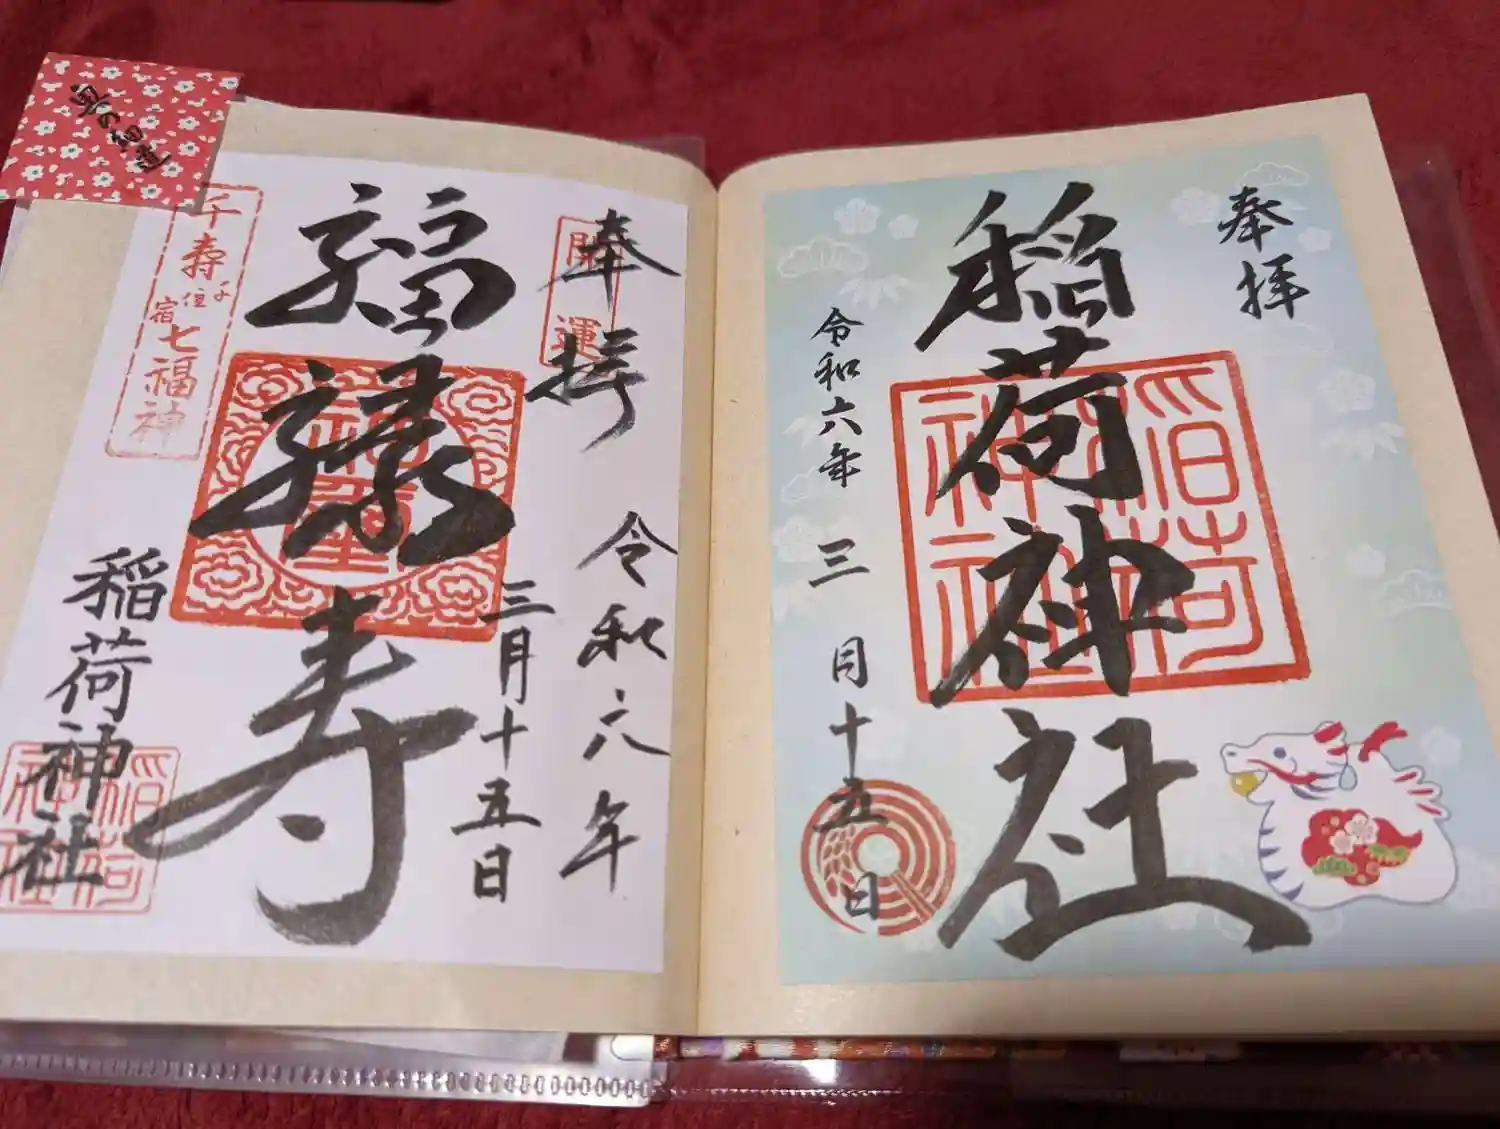 奉拝
稲荷神社
稲荷神社
令和六年
三月十五日
開運
奉拝
令和六年
三月十五日
福禄寿
千寿七福神
千住宿
稲荷神社
稲荷神社
奥の細道